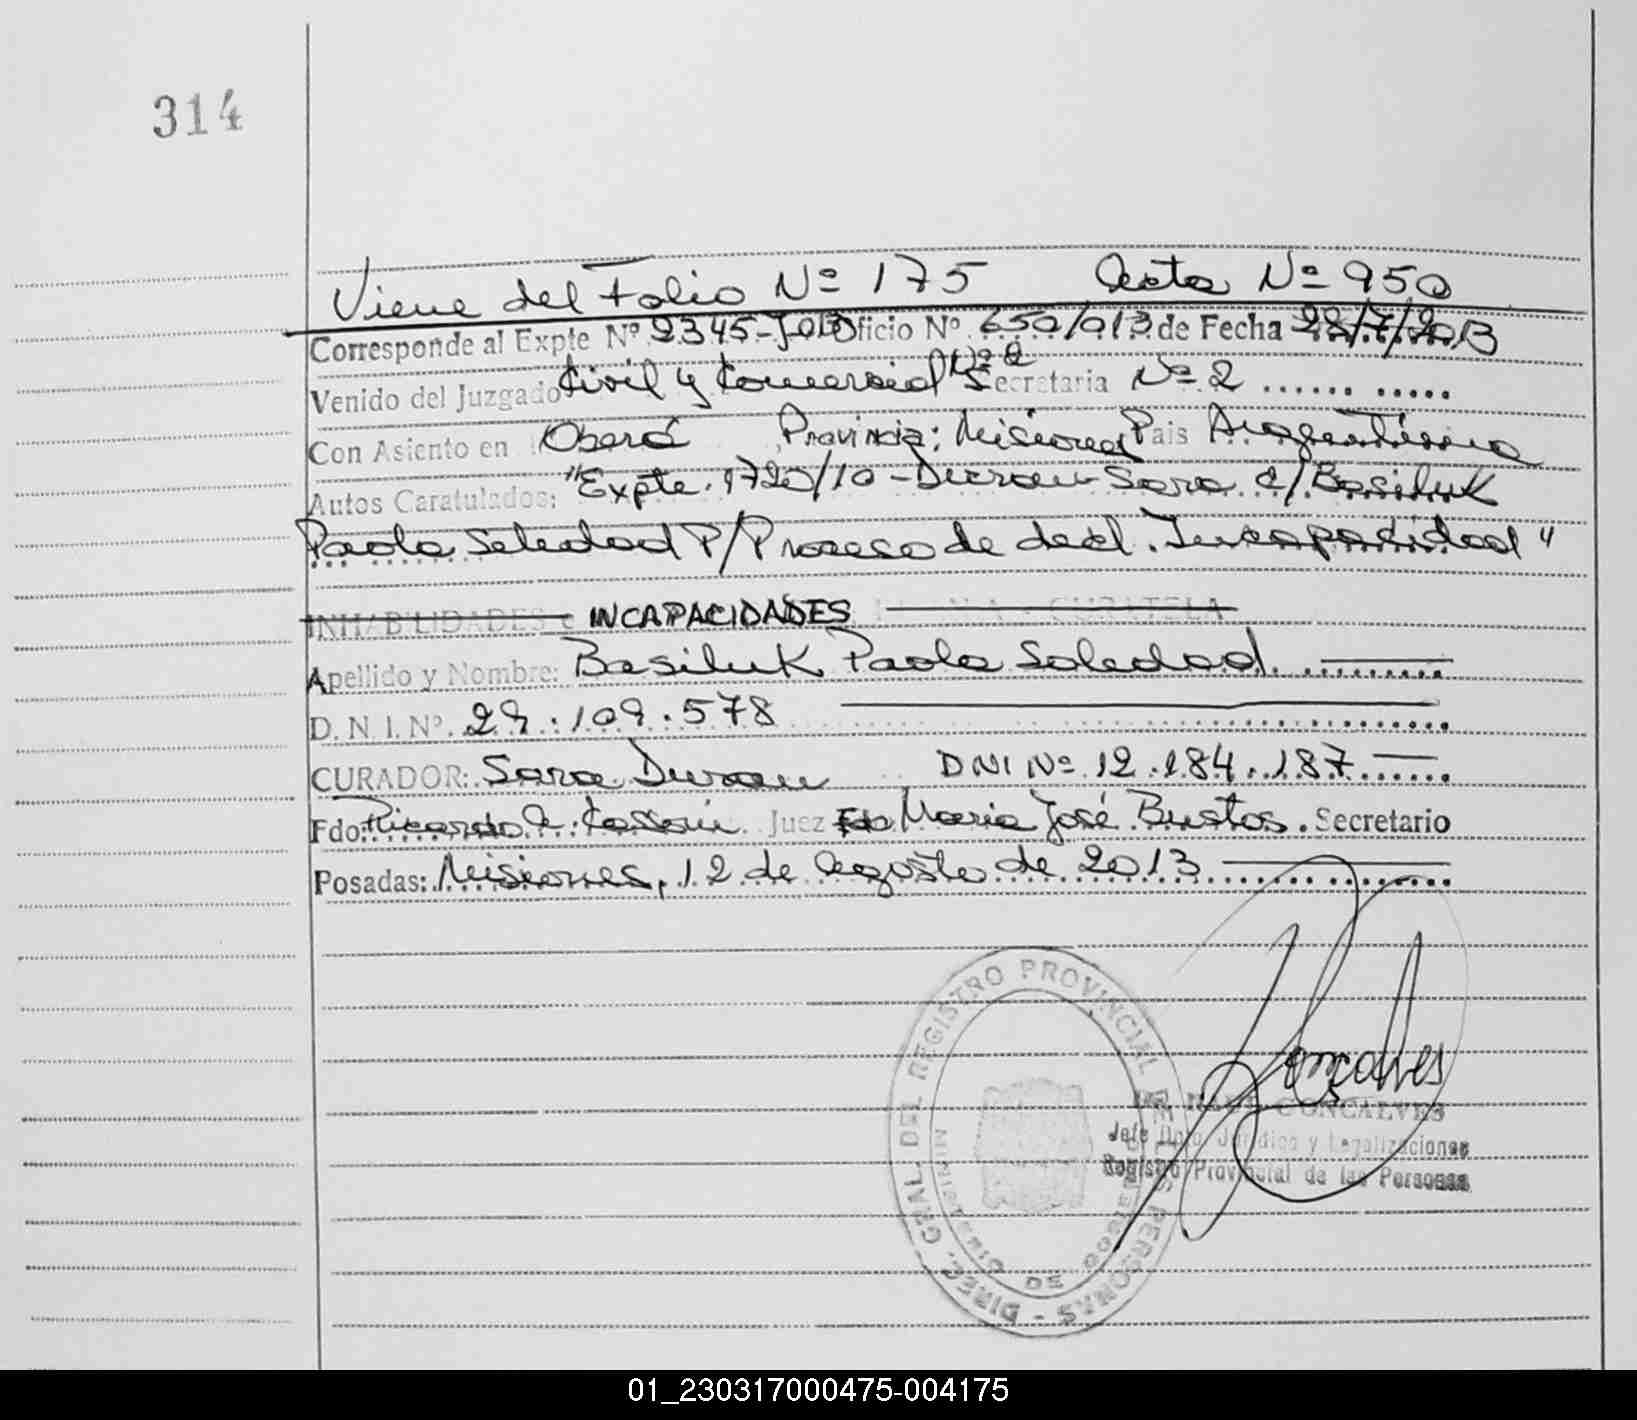 314
Viene del Folio Nº 175 Acta Nº 950
Corresponde al Expte Nº 2345-J-013 Oficio Nº 650/013 de Fecha 28/7/2013
Venido del Juzgado Civil y Comercial Nº 2 Secretaria Nº 2
Con Asiento en Oberá Provincia: Misiones Pais Argentina
Autos Caratulados: "Expte. 1720/10 - Duran Sara c/ Basiluk
Paola Soledad P/ Proceso de decl. Incapacidad"
INHABILIDADES e INCAPACIDADES CURATELA
Apellido y Nombre: Basiluk Paola Soledad.
D. N. I. Nº 29.109.578
CURADOR: Sara Duran DNI Nº 12.184.187
Fdo: Ricardo Juez Fdo Maria José Bustos. Secretario
Posadas: Misiones, 12 de Agosto de 2013
DIREC. GRAL. DEL REGISTRO PROVINCIAL DE LAS PERSONAS
Gonçalves
GONCALVES
Jefe Dpto. Jurídico y Legalizaciones
Registro Provincial de las Personas
01_230317000475-004175